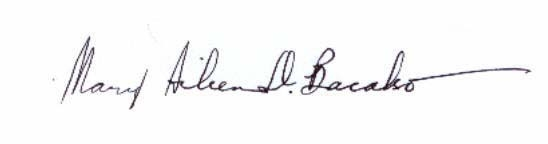 Mary Aileen D. Bacalso